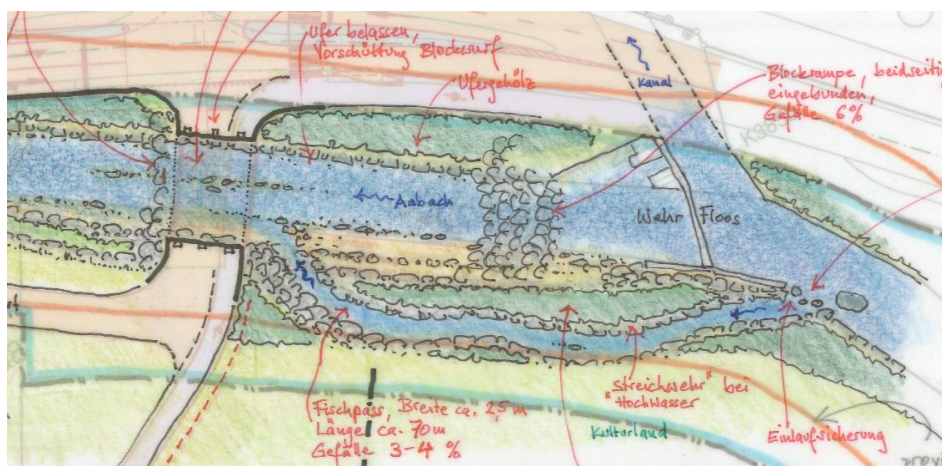 Ufer belassen,
Vorschüttung Blockwurf
Ufergehölz
Kanal
Blockrampe, beidseitig
eingebunden,
Gefälle 6%
Aabach
Wehr Floos
Fischpass, Breite ca. 2,5 m
Länge ca. 70m
Gefälle 3-4 %
"Streichwehr" bei
Hochwasser
Kulturland
Einlaufsicherung